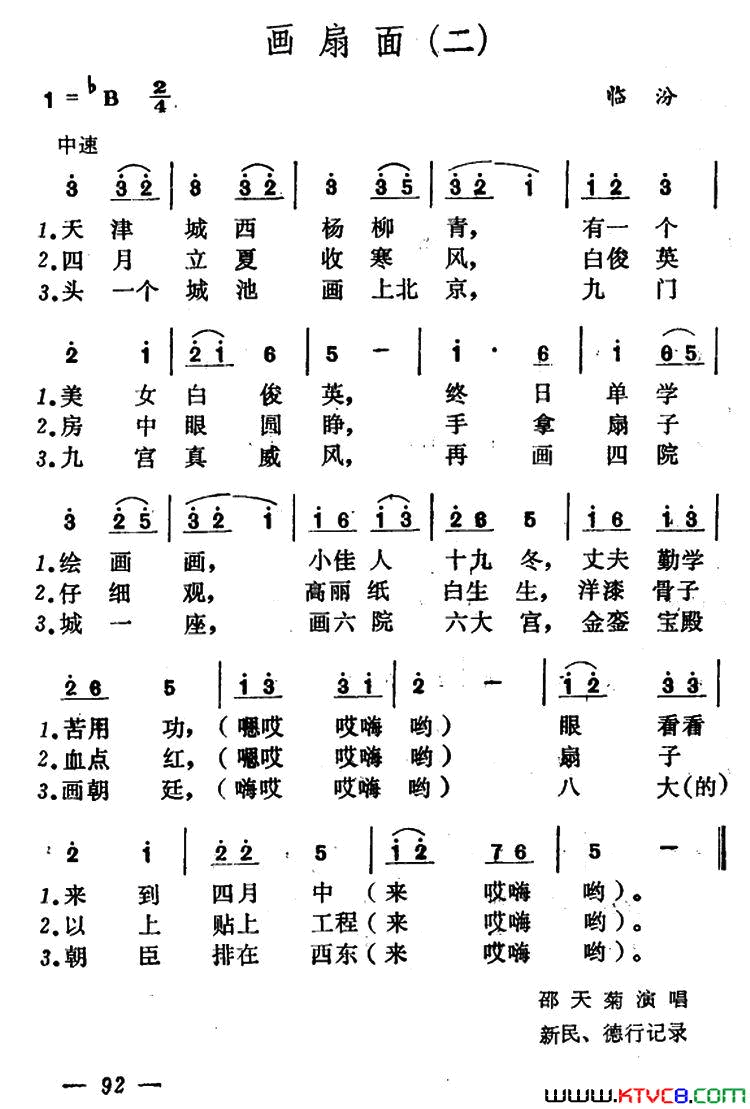 画扇面(二)
1=♭B 2/4
临汾
中速
3̇ 3̇2̇ | 3̇ 3̇2̇ | 3̇ 3̇5̇ | 3̇2̇ 1̇ | 1̇2̇ 3̇ |
1.天津城西杨柳青，有一个
2.四月立夏收寒风，白俊英
3.头一个城池画上北京，九门
2̇ 1̇ | 2̇1̇ 6 | 5 － | 1̇ · 6 | 1̇ 65 |
1.美女白俊英，终日单学
2.房中眼圆睁，手拿扇子
3.九宫真威风，再画四院
3̇ 2̇5̇ | 3̇2̇ 1̇ | 1̇6 1̇3̇ | 2̇6 5 | 1̇2̇ 3̇3̇ |
1.绘画画，小佳人十九冬，丈夫勤学
2.仔细观，高丽纸白生生，洋漆骨子
3.城一座，画六院六大宫，金銮宝殿
2̇6 5 | 1̇3̇ 3̇1̇ | 2̇ － | 1̇2̇ 3̇3̇ |
1.苦用功，(嗯哎哎嗨哟)眼看看
2.血点红，(嗯哎哎嗨哟)扇子
3.画朝廷，(嗨哎哎嗨哟)八大(的)
2̇ 1̇ | 2̇2̇ 5 | 1̇2̇ 76 | 5 － ‖
1.来到四月中(来哎嗨哟)。
2.以上贴上工程(来哎嗨哟)。
3.朝臣排在西东(来哎嗨哟)。
邵天菊演唱
新民、德行记录
— 92 —
www.KTVC8.COM